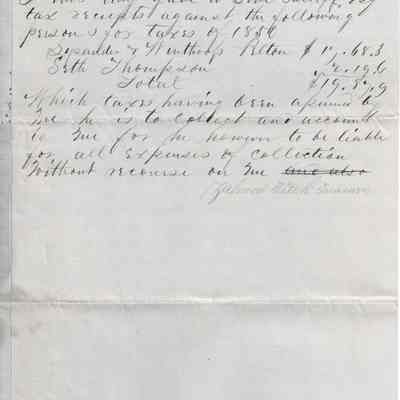 tax receipts against the following
persons for taxes of 1850
Lysander & Winthrop Pelton $ 17.68.3
Seth Thompson 2.19.6
Total $19.87.9
Which taxes having been assumed by
he is to collect and account
to me for he however to be liable
for all Expenses of collection
Without recourse on me and also